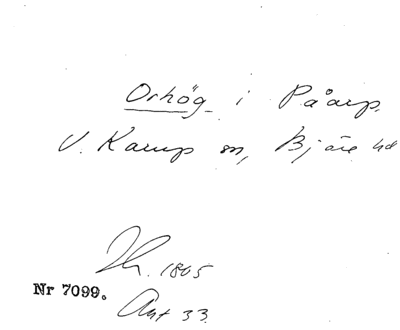 Orhög i Påarp.
V. Karup sn, Bjäre hd
Th. 1805
Nr 7099.
Ant 33.